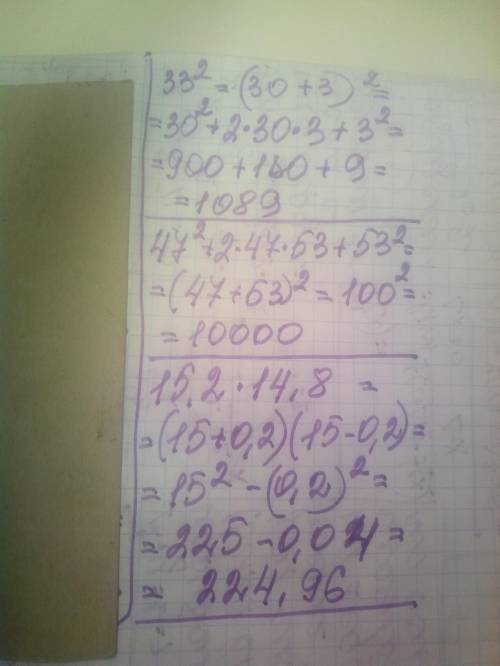 33² = (30 + 3)² =
= 30² + 2·30·3 + 3² =
= 900 + 180 + 9 =
= 1089
47² + 2·47·53 + 53² =
= (47 + 53)² = 100² =
= 10000
15,2 · 14,8 =
= (15 + 0,2)(15 - 0,2) =
= 15² - (0,2)² =
= 225 - 0,04 =
= 224,96